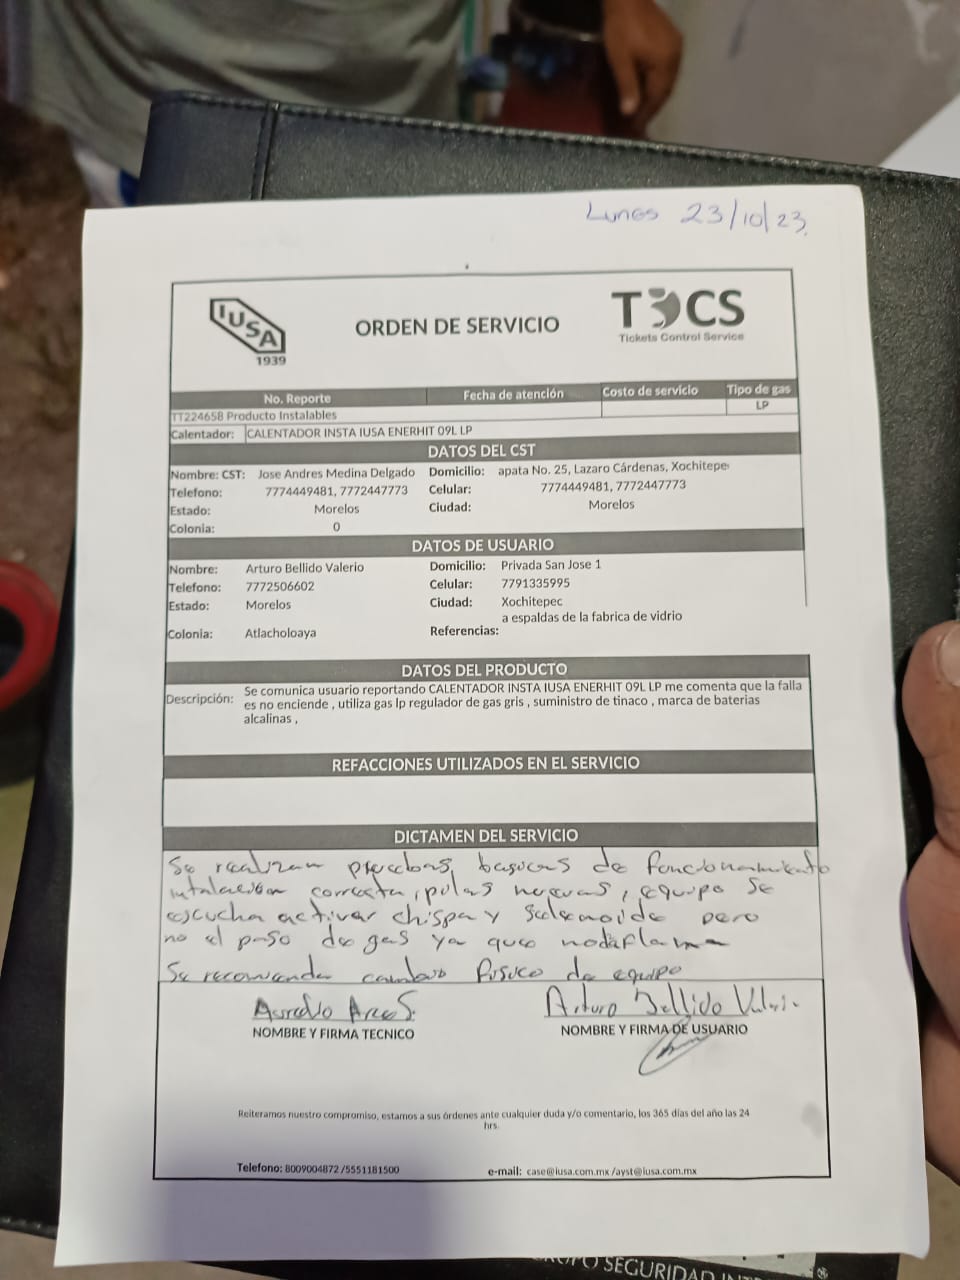 Lunes 23/10/23.
IUSA
1939
ORDEN DE SERVICIO
TCS
Tickets Control Service
No. Reporte Fecha de atención Costo de servicio Tipo de gas
TT224658 Producto Instalables LP
Calentador: CALENTADOR INSTA IUSA ENERHIT 09L LP
DATOS DEL CST
Nombre: CST: Jose Andres Medina Delgado Domicilio: apata No. 25, Lazaro Cárdenas, Xochitepe
Telefono: 7774449481, 7772447773 Celular: 7774449481, 7772447773
Estado: Morelos Ciudad: Morelos
Colonia: 0
DATOS DE USUARIO
Nombre: Arturo Bellido Valerio Domicilio: Privada San Jose 1
Telefono: 7772506602 Celular: 7791335995
Estado: Morelos Ciudad: Xochitepec
a espaldas de la fabrica de vidrio
Colonia: Atlacholoaya Referencias:
DATOS DEL PRODUCTO
Descripción: Se comunica usuario reportando CALENTADOR INSTA IUSA ENERHIT 09L LP me comenta que la falla
es no enciende , utiliza gas lp regulador de gas gris , suministro de tinaco , marca de baterias
alcalinas ,
REFACCIONES UTILIZADOS EN EL SERVICIO
DICTAMEN DEL SERVICIO
Se realizan pruebas basicas de funcionamiento
intalación correcta, pilas nuevas, equipo se
escucha activar chispa y solenoide pero
no el paso de gas ya que no da flama
Se recomienda cambio fisico de equipo
Arturo Bellido Valerio
NOMBRE Y FIRMA TECNICO NOMBRE Y FIRMA DE USUARIO
Reiteramos nuestro compromiso, estamos a sus órdenes ante cualquier duda y/o comentario, los 365 días del año las 24
hrs.
Telefono: 8009004872 /5551181500 e-mail: case@iusa.com.mx /ayst@iusa.com.mx
SEGURIDAD